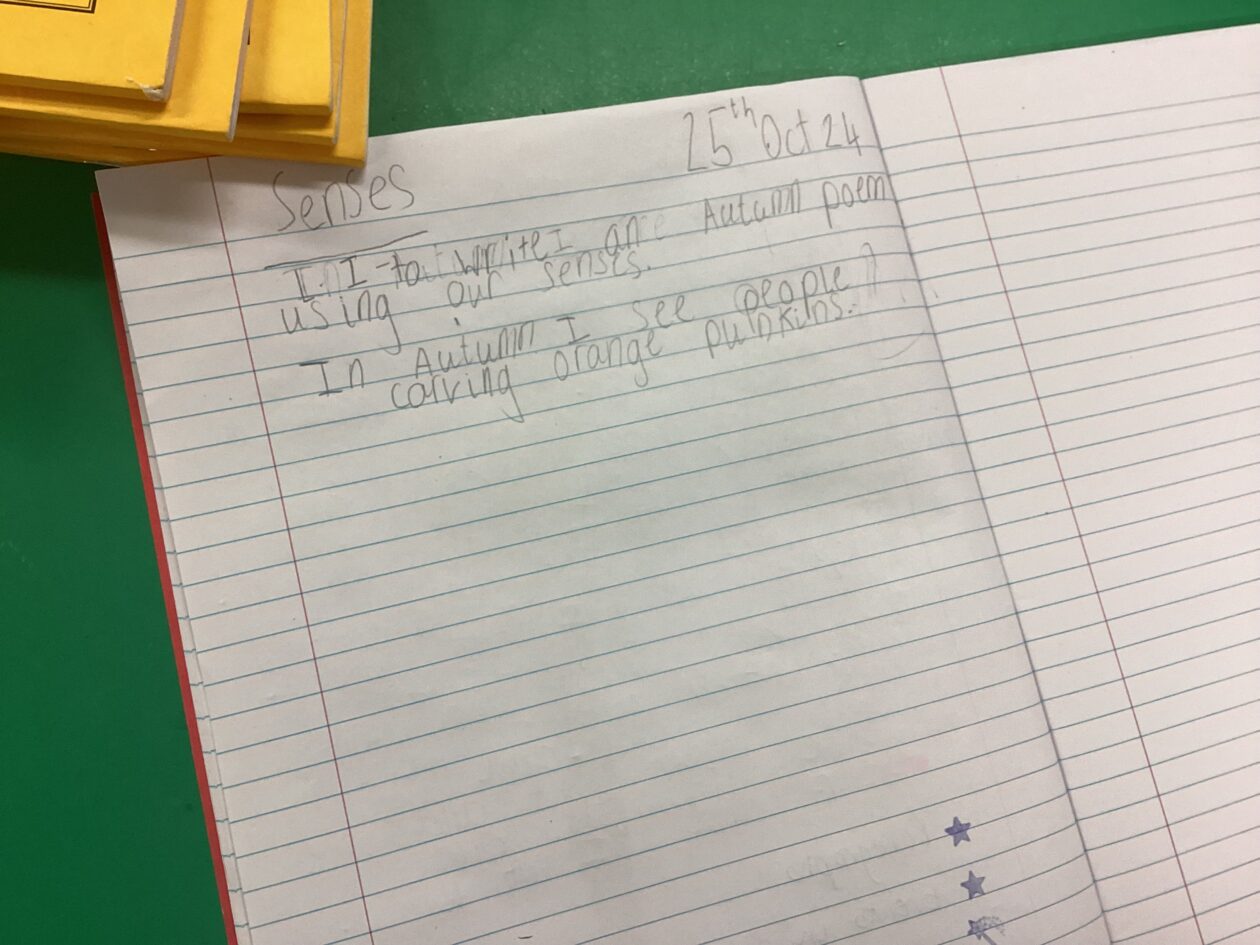 25th Oct 24
Senses
I to write an Autumn poem
using our senses.
In Autumn I see people
carving orange punkins.